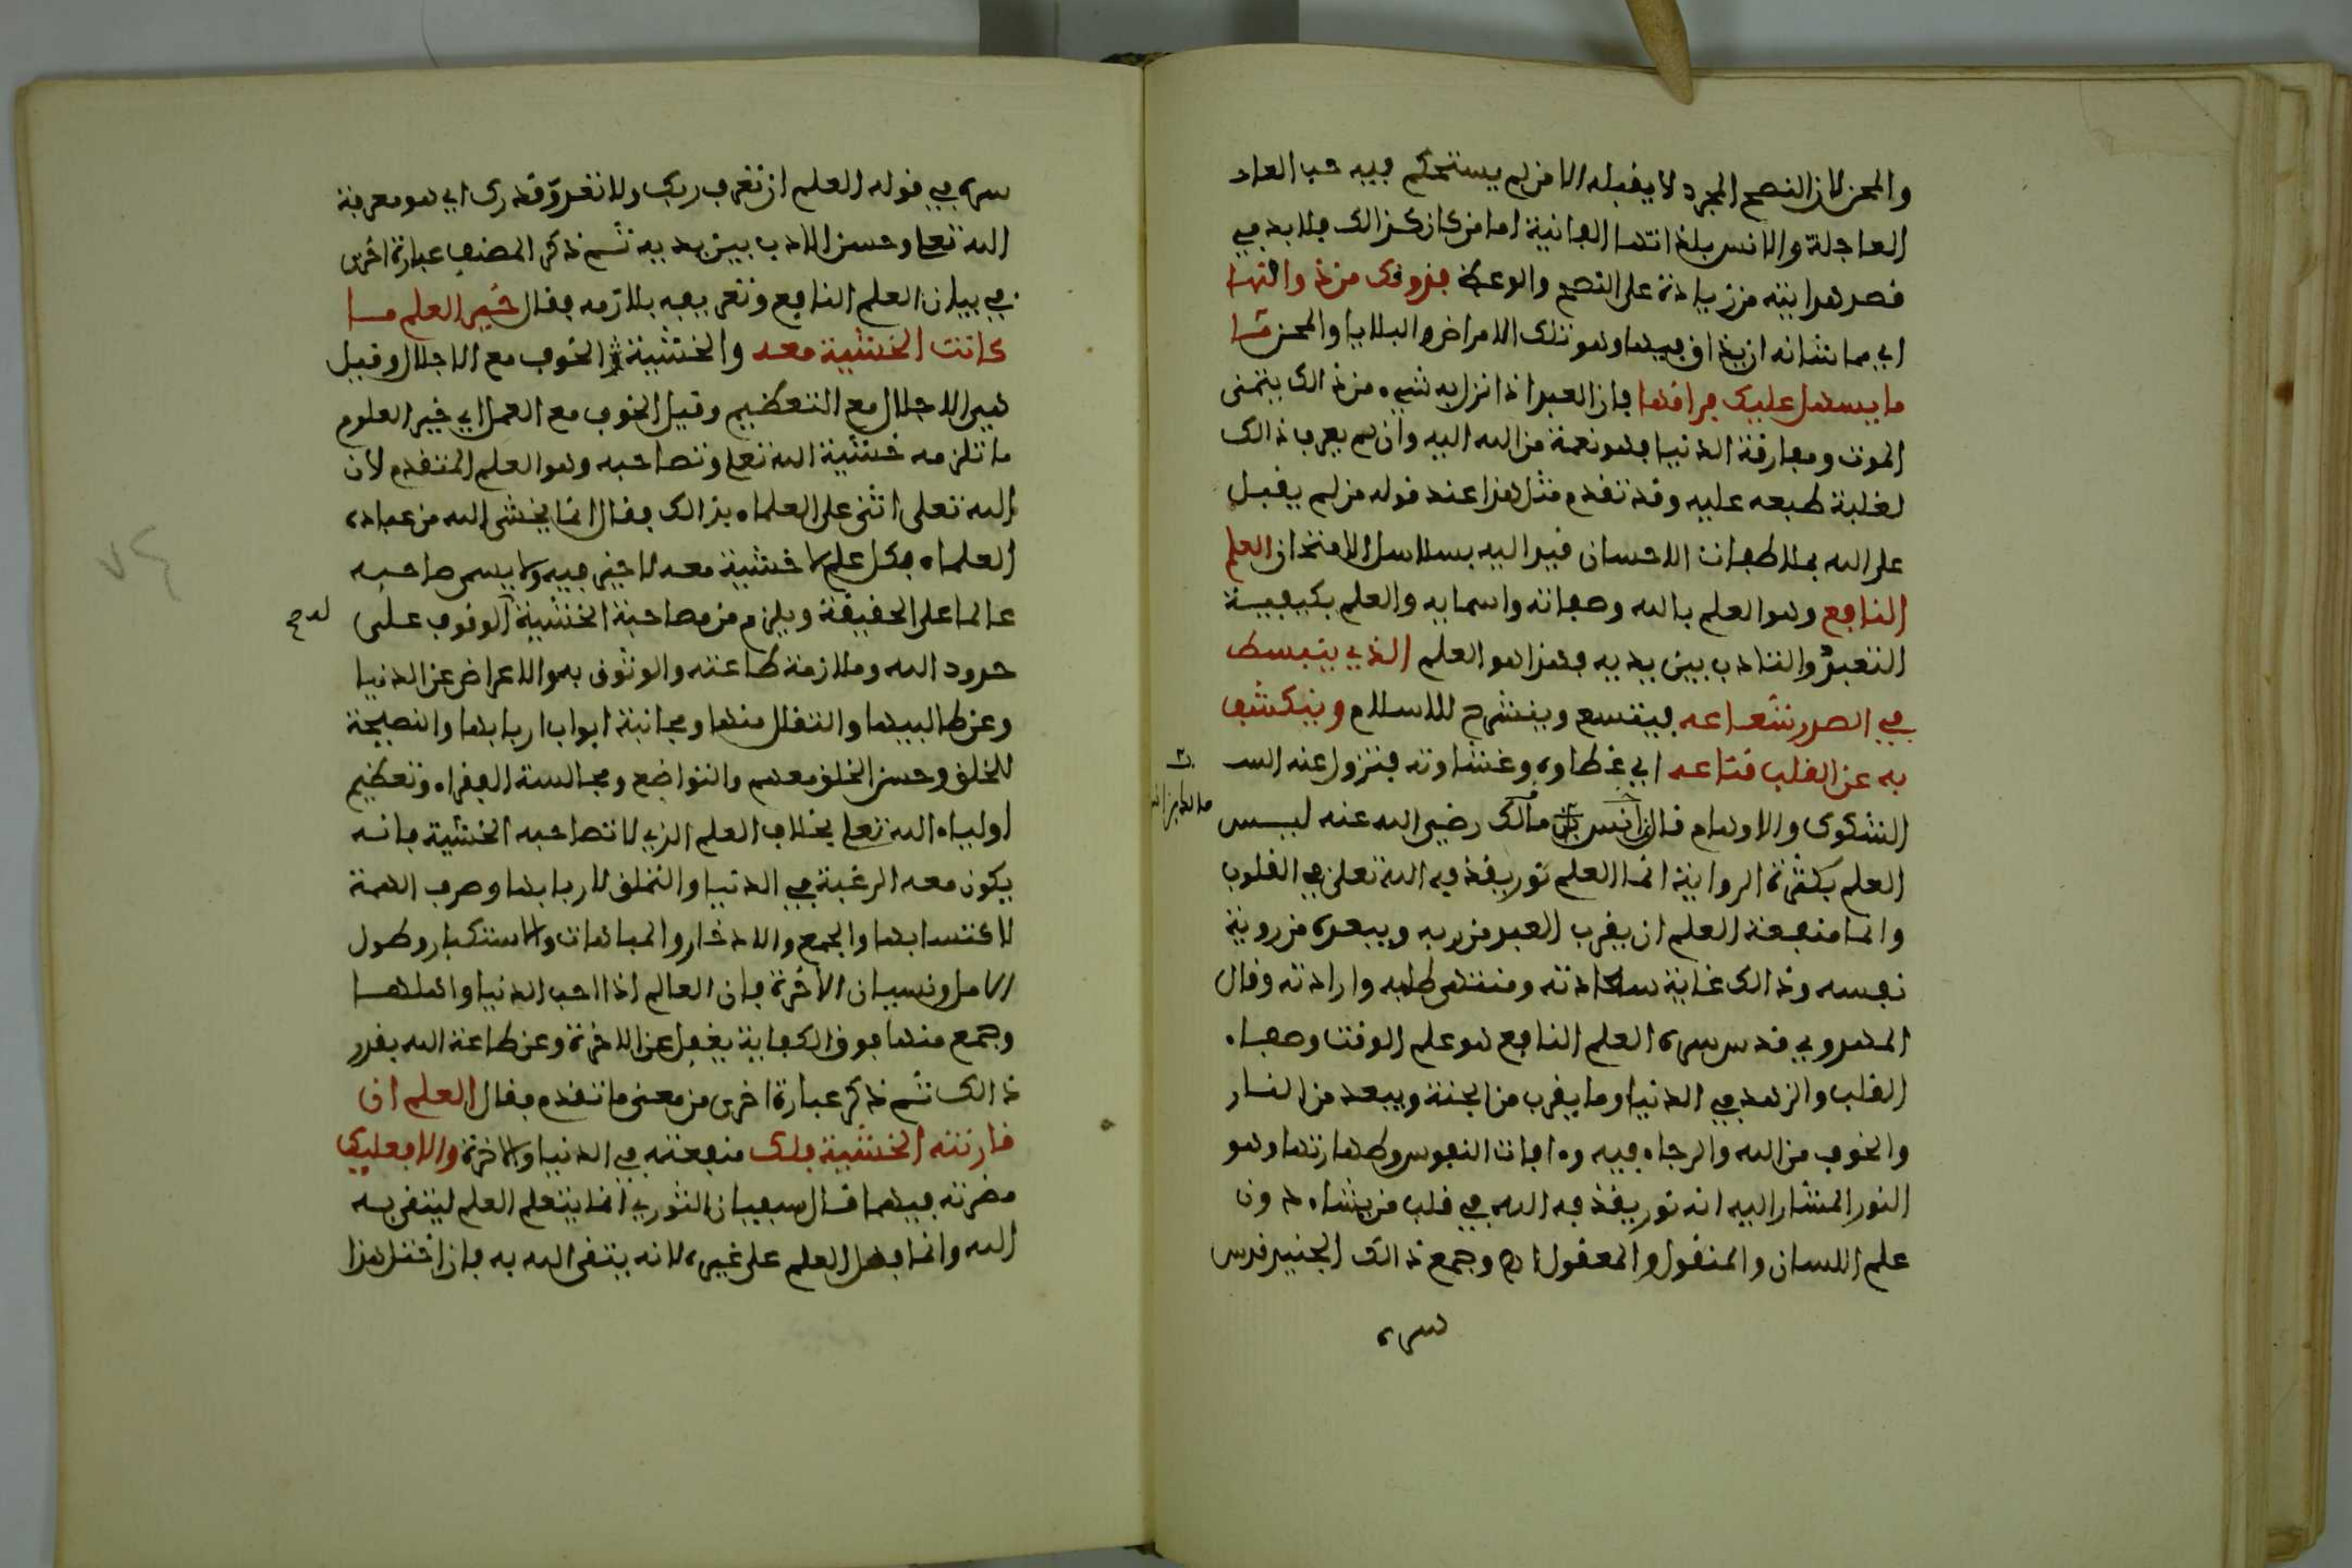 والمحن لان النصح المجرد لا يقبله الا من لم يستحكم فيه حب الدار
العاجلة والانس بلذاتها الفانية اما من كان كذالك فلا بد في
قصد هدايته من زيادة على النصح والوعظ فذوقك من ذواقها
اي مما شانه ان يذاق فيها وهو تلك الامراض والبلايا والمحن
ما يسهل عليك فراقها فان العبد اذا نزل به شيء من ذالك يتمنى
الموت ومفارقة الدنيا فهو نعمة من الله اليه وان لم يعرف ذالك
لغلبة طبعه عليه وقد تقدم مثل هذا عند قوله من لم يقبل
على الله بملاطفات الاحسان قيد اليه بسلاسل الامتحان العلم
النافع وهو العلم بالله وصفاته واسمايه والعلم بكيفية
التعبد والتادب بين يديه فهذا هو العلم الذي ينبسط
في الصدر شعاعه فيتسع وينشرح للاسلام وينكشف
به عن القلب قناعه اي غطاوه وغشاوته فتزول عنه
الشكوك والاوهام قال مالك رضي الله عنه ليس
العلم بكثرة الرواية انما العلم نور يقذفه الله تعلى في القلوب
وانما منفعة العلم ان يقرب العبد من ربه ويبعده من روية
نفسه وذالك غاية سعادته ومنتهى طلبه وارادته وقال
المهدوي قدس سره العلم النافع هو علم الوقت وصفاء
القلب والزهد في الدنيا وما يقرب من الجنة ويبعد من النار
والخوف من الله والرجاء فيه وءافات النفوس وطهارتها وهو
النور المشار اليه انه نور يقذفه الله في قلب من يشاء دون
علم اللسان والمنقول والمعقول اه وجمع ذالك الجنيد قدس
سره
سره في قوله العلم ان تعرف ربك ولا تعدو قدرك اي هو معرفة
الله تعلى وحسن الادب بين يديه ثم ذكر المصنف عبارة اخرى
في بيان العلم النافع وتعريفه بلازمه فقال خير العلم ما
كانت الخشية معه والخشية الخوف مع الاجلال وقيل
هي الاجلال مع التعظيم وقيل الخوف مع العمل اي خير العلوم
ما تلزمه خشية الله تعلى وتصاحبه وهو العلم المتقدم لان
الله تعلى اثنى على العلماء بذالك فقال انما يخشى الله من عباده
العلماء فكل علم لا خشية معه لا خير فيه ولا يسمى صاحبه
عالما على الحقيقة ويلزم من مصاحبة الخشية الوقوف على
حدود الله وملازمة طاعته والوثوق به والاعراض عن الدنيا
وعن طالبيها والتقلل منها ومجانبة ابواب اربابها والنصيحة
للخلق وحسن الخلق معهم والتواضع ومجالسة الفقراء وتعظيم
اولياء الله تعلى بخلاف العلم الذي لا تصاحبه الخشية فانه
يكون معه الرغبة في الدنيا والتملق لاربابها وصرف الهمة
لاكتسابها والجمع والادخار والمباهات والاستكبار وطول
الامل ونسيان الاخرة فان العالم اذا احب الدنيا واهلها
وجمع منها فوق الكفاية يغفل عن الاخرة وعن طاعة الله بقدر
ذالك ثم ذكر عبارة اخرى من معنى ما تقدم فقال العلم ان
قارنته الخشية فلك منفعته في الدنيا والاخرة والا فعليك
مضرته فيهما قال سفيان الثوري انما يتعلم العلم ليتقى به
الله وانما فضل العلم على غيره لانه يتقى الله به فان اختل هذا